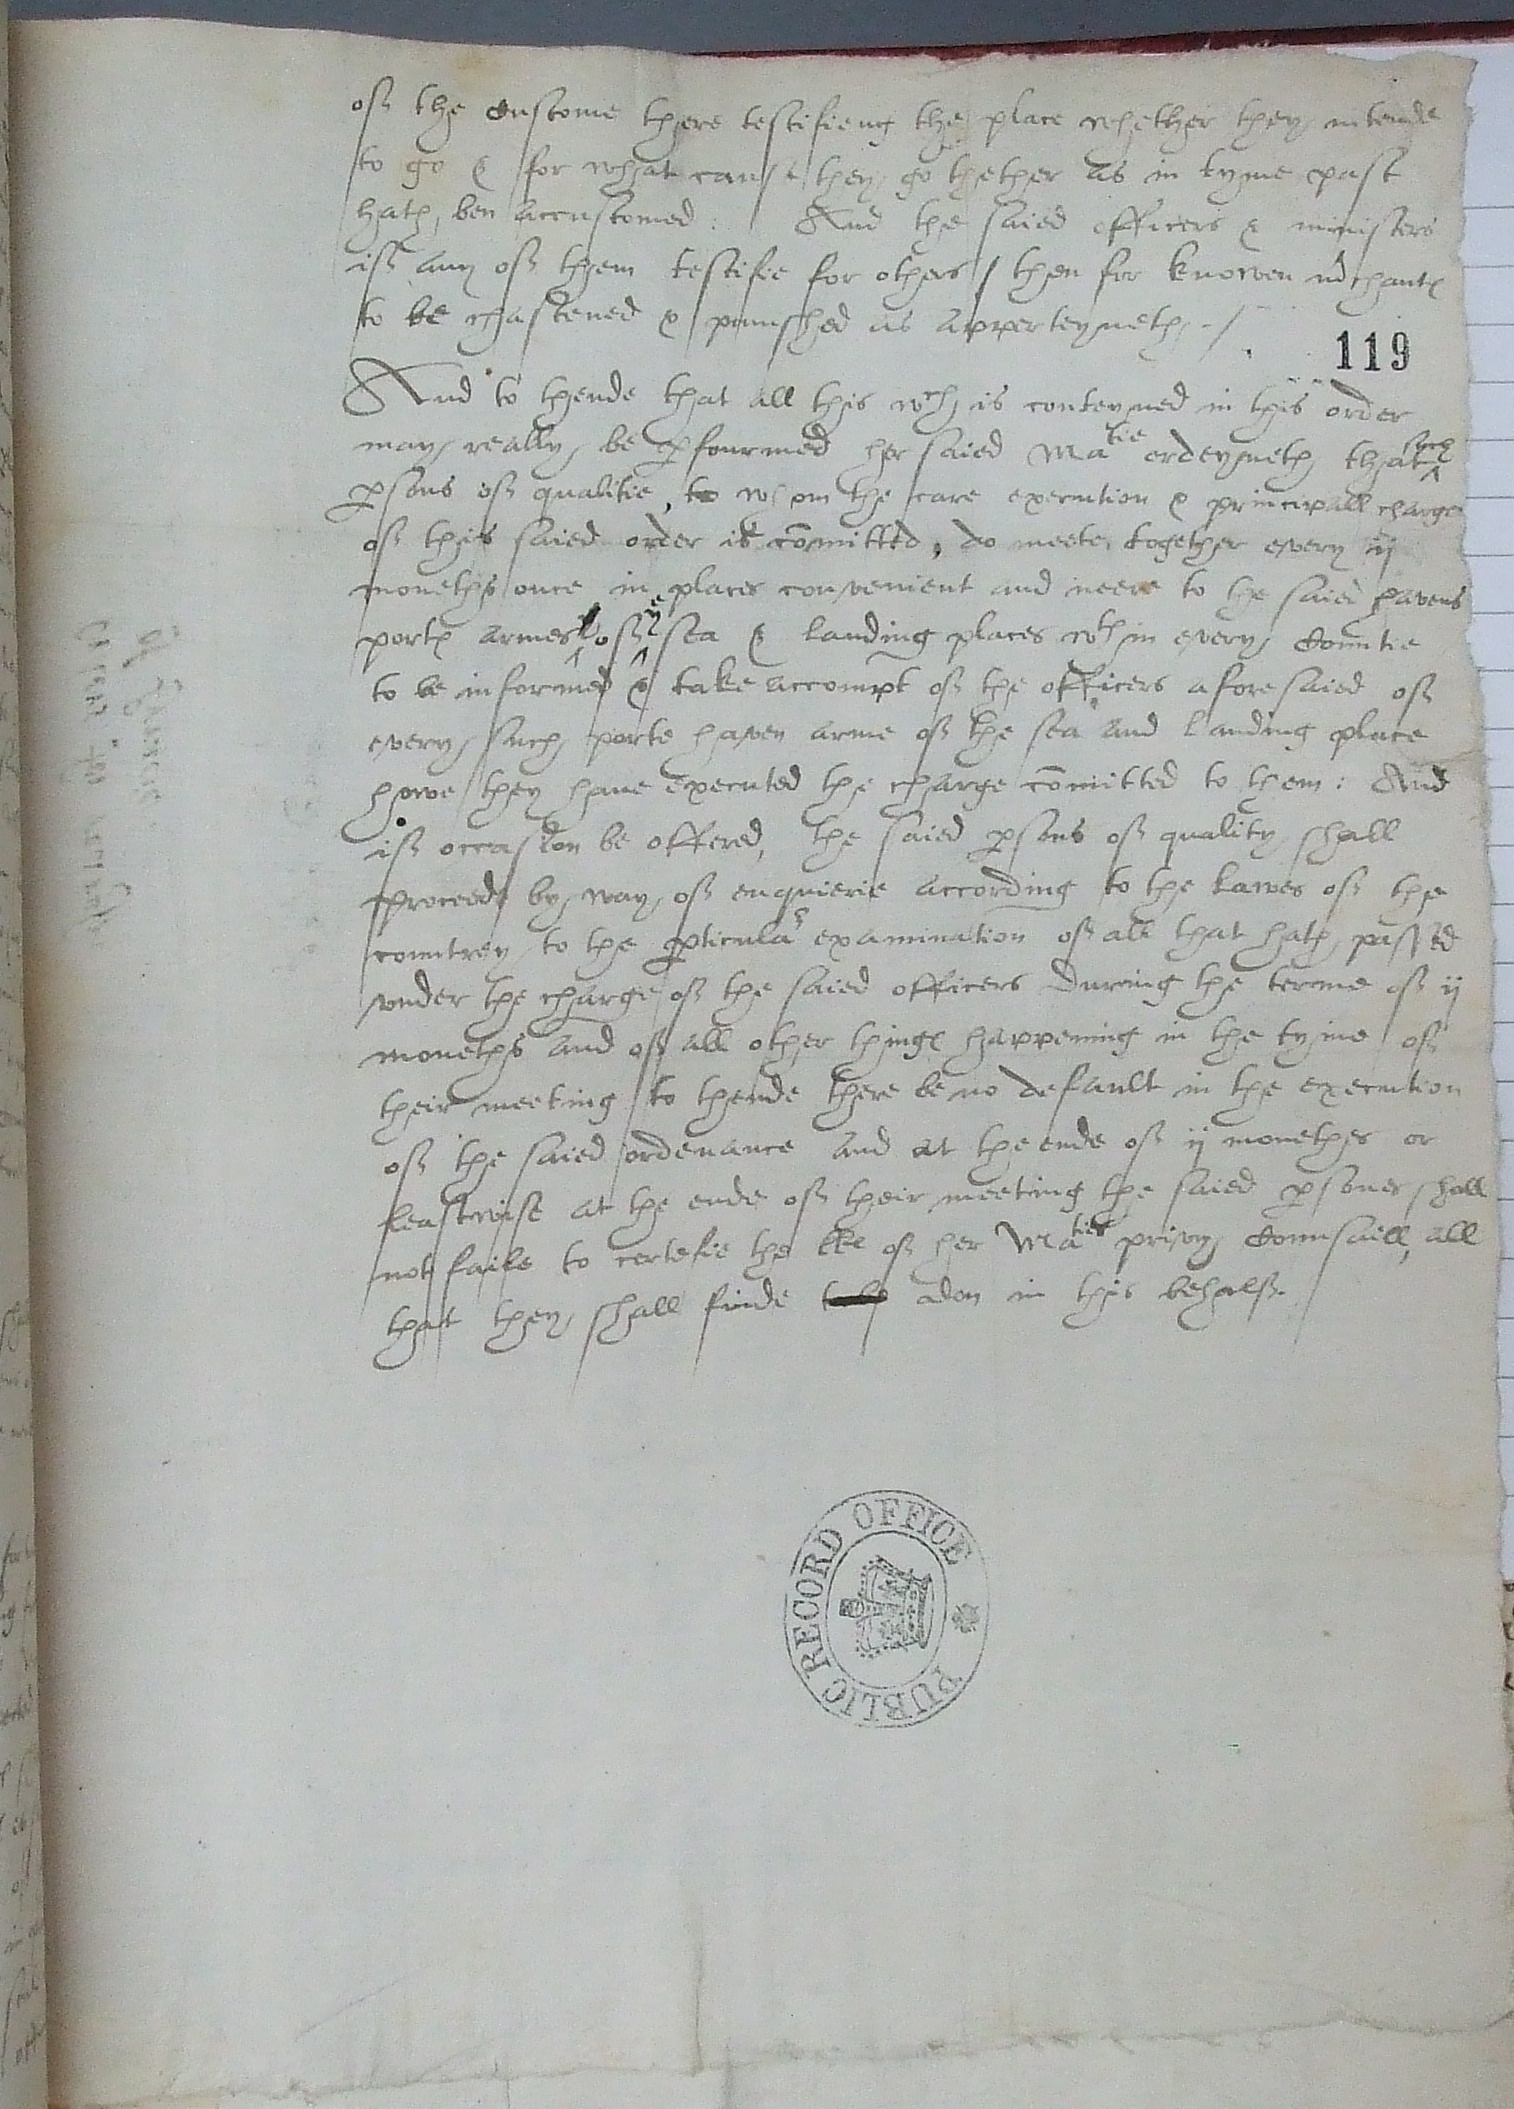 of the Custome there testifieng the place whether they intende
to go & for what cause they go thether as in tyme past
hath ben accustomed : And the saied officers & ministers
if any of them testifie for others / then for knowen mchantes
to be chastened & punished as apperteyneth -/
119
And to thende that all this wch is conteyned in this order
may really be pfourmed her saied Matie ordeyneth that such
psons of qualitie, to whom the care execution & principall charge
of this saied order is comitted, do meete together every ij
moneths once in places convenient and neere to the saied havens
portes armes of ye sea & landing places wth in every Countie
to be informed & take accompt of the officers aforesaied of
every such porte haven arme of the sea and landing place
howe they have executed the charge comitted to them : And
if occasion be offered, the saied psons of quality shall
procede by way of enquierie according to the lawes of the
countrey to the pticular examination of all that hath passed
vnder the charge of the saied officers during the terme of ij
moneths and of all other thinges happening in the tyme of
their meeting to thende there be no default in the execution
of the saied ordenance and at the ende of ij monethes or
leastwise at the ende of their meeting the saied psones shall
not faile to certefie the lles of her Maties privy Counsaill, all
that they shall finde adon in this behalf.
PUBLIC RECORD OFFICE